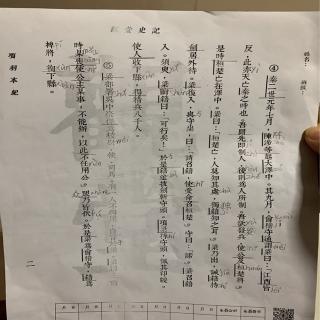 姓名:
班級:
④ 秦二世元年七月,陳涉等起大澤中。其九月,會稽守通謂梁曰:「江西皆
反,此亦天亡秦之時也。吾聞先即制人,後則為人所制。吾欲發兵,使公及桓楚將。」
是時桓楚亡在澤中。梁曰:「桓楚亡,人莫知其處,獨籍知之耳。」梁乃出,誡籍持
劍居外待。梁復入,與守坐,曰:「請召籍,使受命召桓楚。」守曰:「諾。」梁召籍
入。須臾,梁眴籍曰:「可行矣!」於是籍遂拔劍斬守頭。項梁持守頭,佩其印綬。
使人收下縣,得精兵八千人。
⑤ 梁部署吳中豪傑為校尉、候、司馬。有一人不得用,自言於梁。梁曰:「前
時某喪使公主某事,不能辦,以此不任用公。」眾乃皆伏。於是梁為會稽守,籍為
裨將,徇下縣。
項羽本紀
二